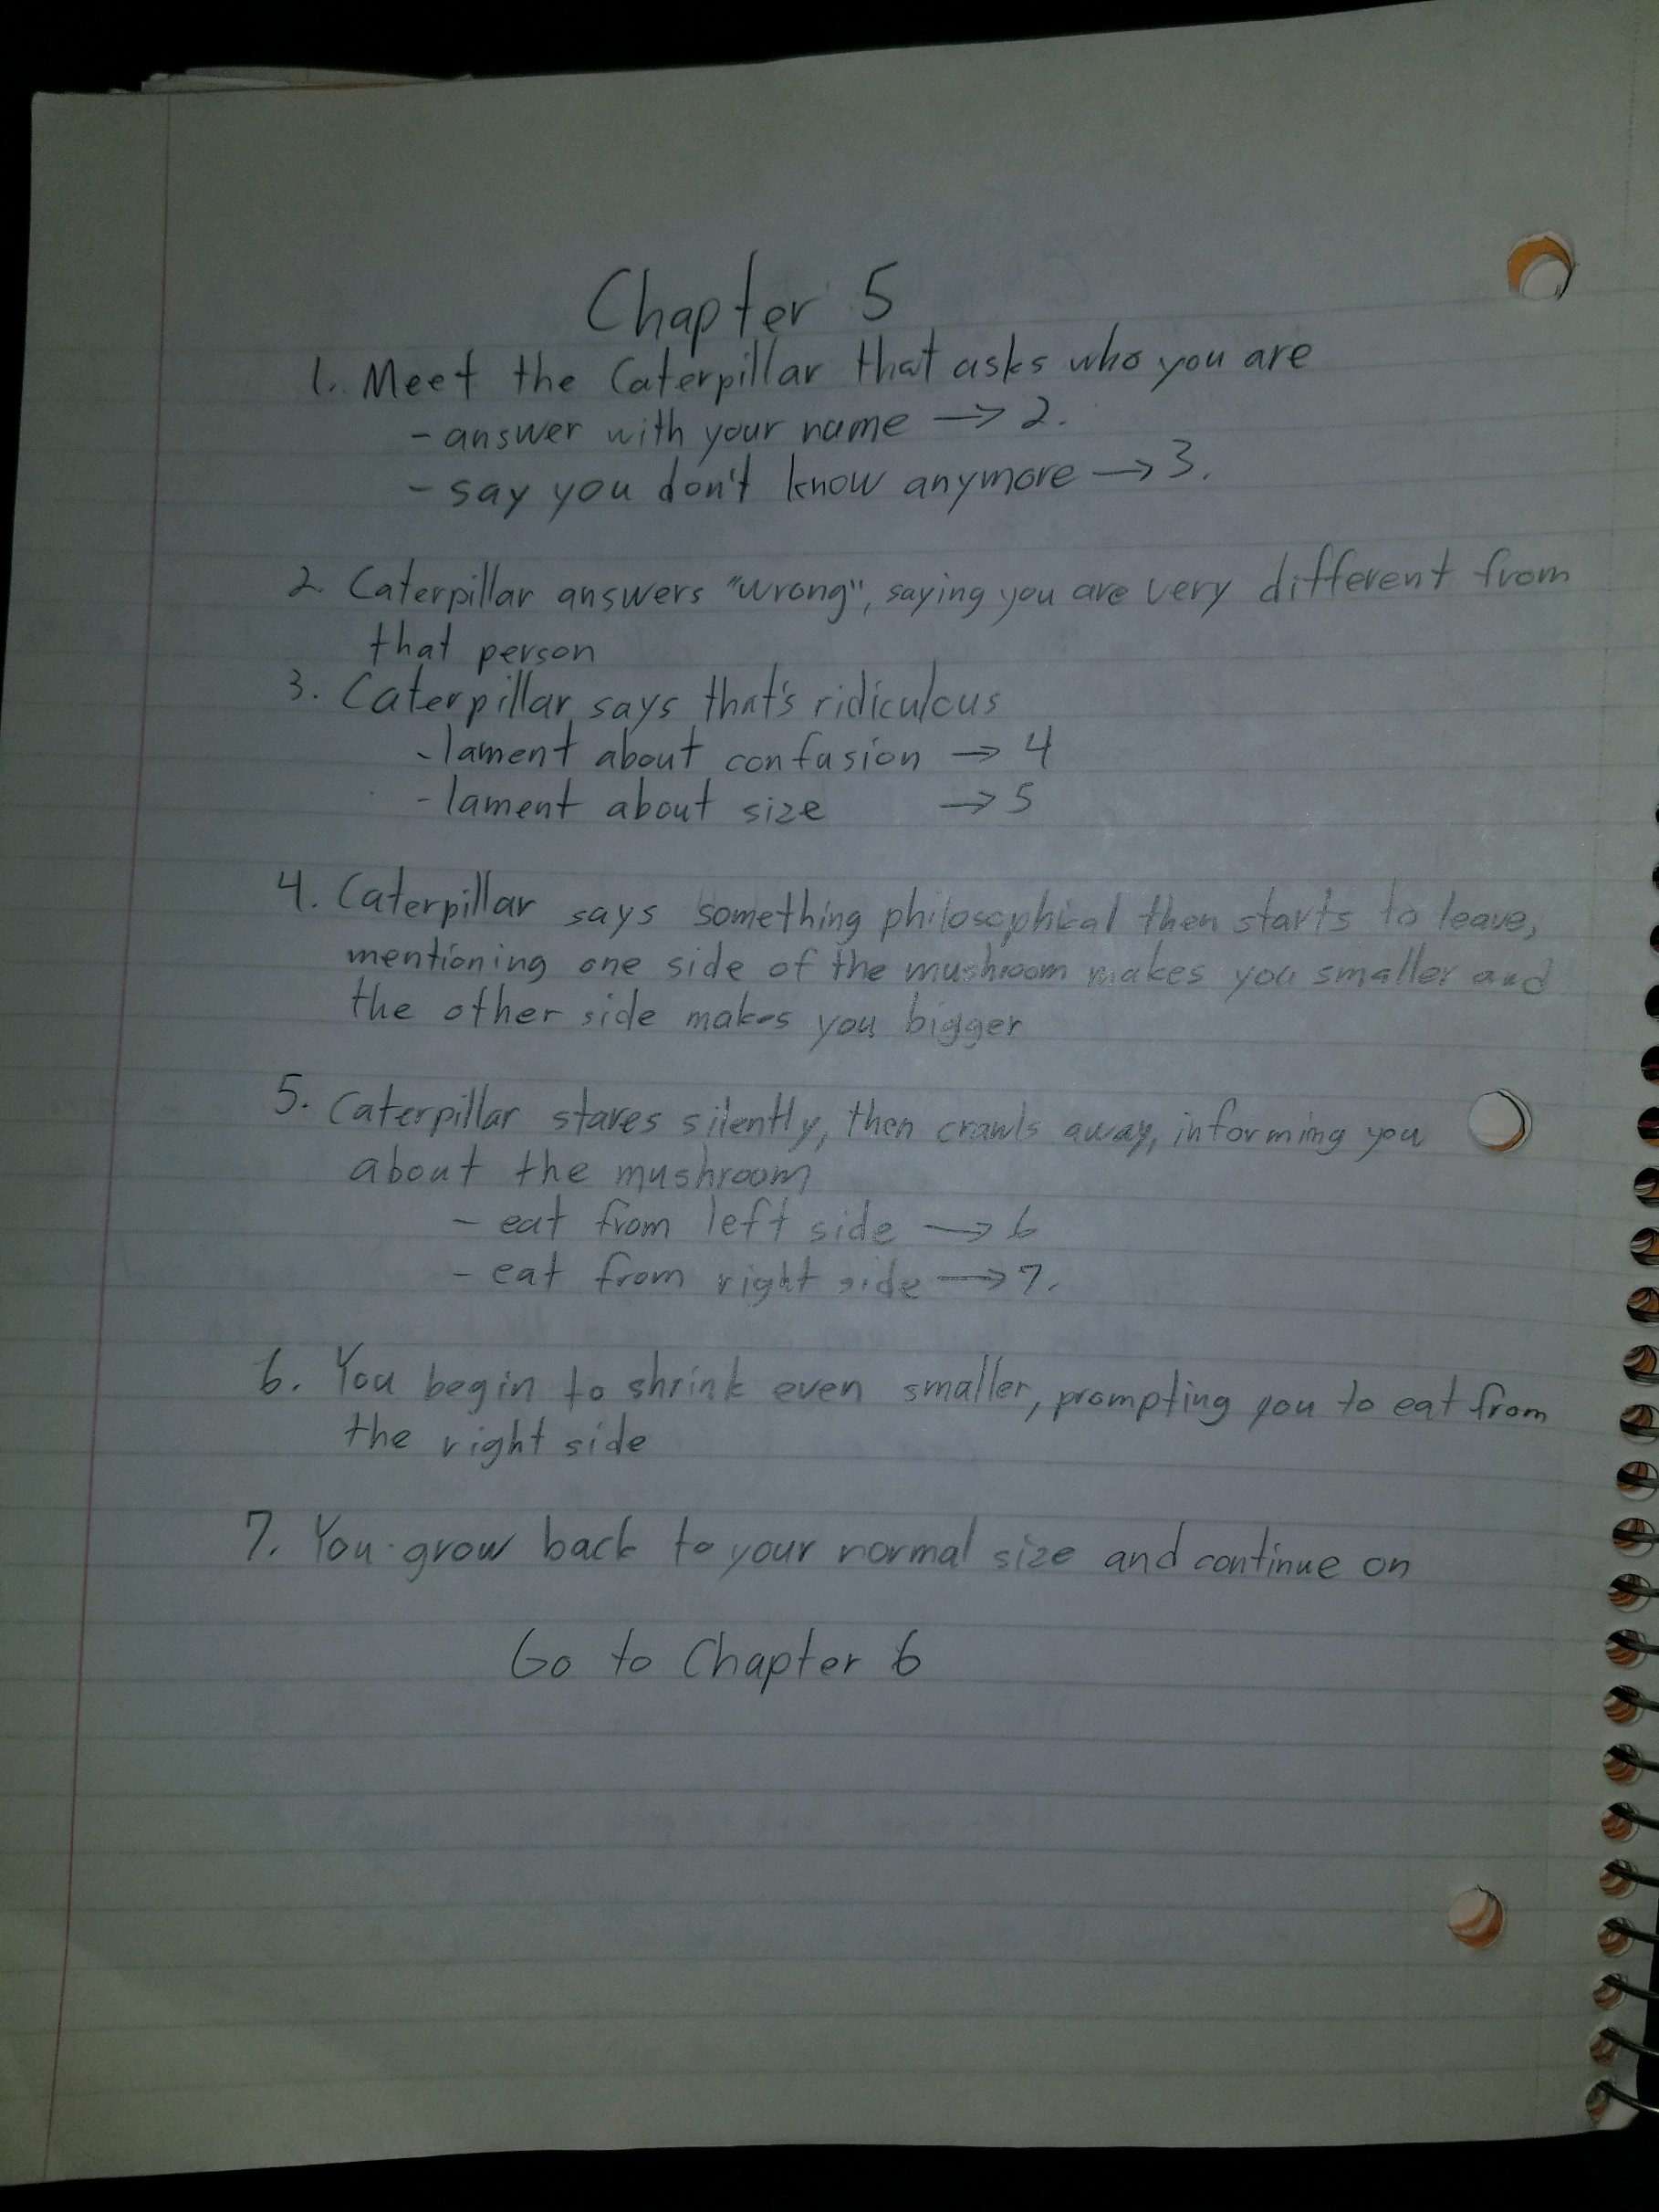 Chapter 5
1. Meet the Caterpillar that asks who you are
- answer with your name → 2.
- say you don't know anymore → 3.
2. Caterpillar answers "wrong", saying you are very different from
that person
3. Caterpillar says that's ridiculous
- lament about confusion → 4
- lament about size → 5
4. Caterpillar says something philosophical then starts to leave,
mentioning one side of the mushroom makes you smaller and
the other side makes you bigger
5. Caterpillar stares silently, then crawls away, informing you
about the mushroom
- eat from left side → 6
- eat from right side → 7.
6. You begin to shrink even smaller, prompting you to eat from
the right side
7. You grow back to your normal size and continue on
Go to Chapter 6